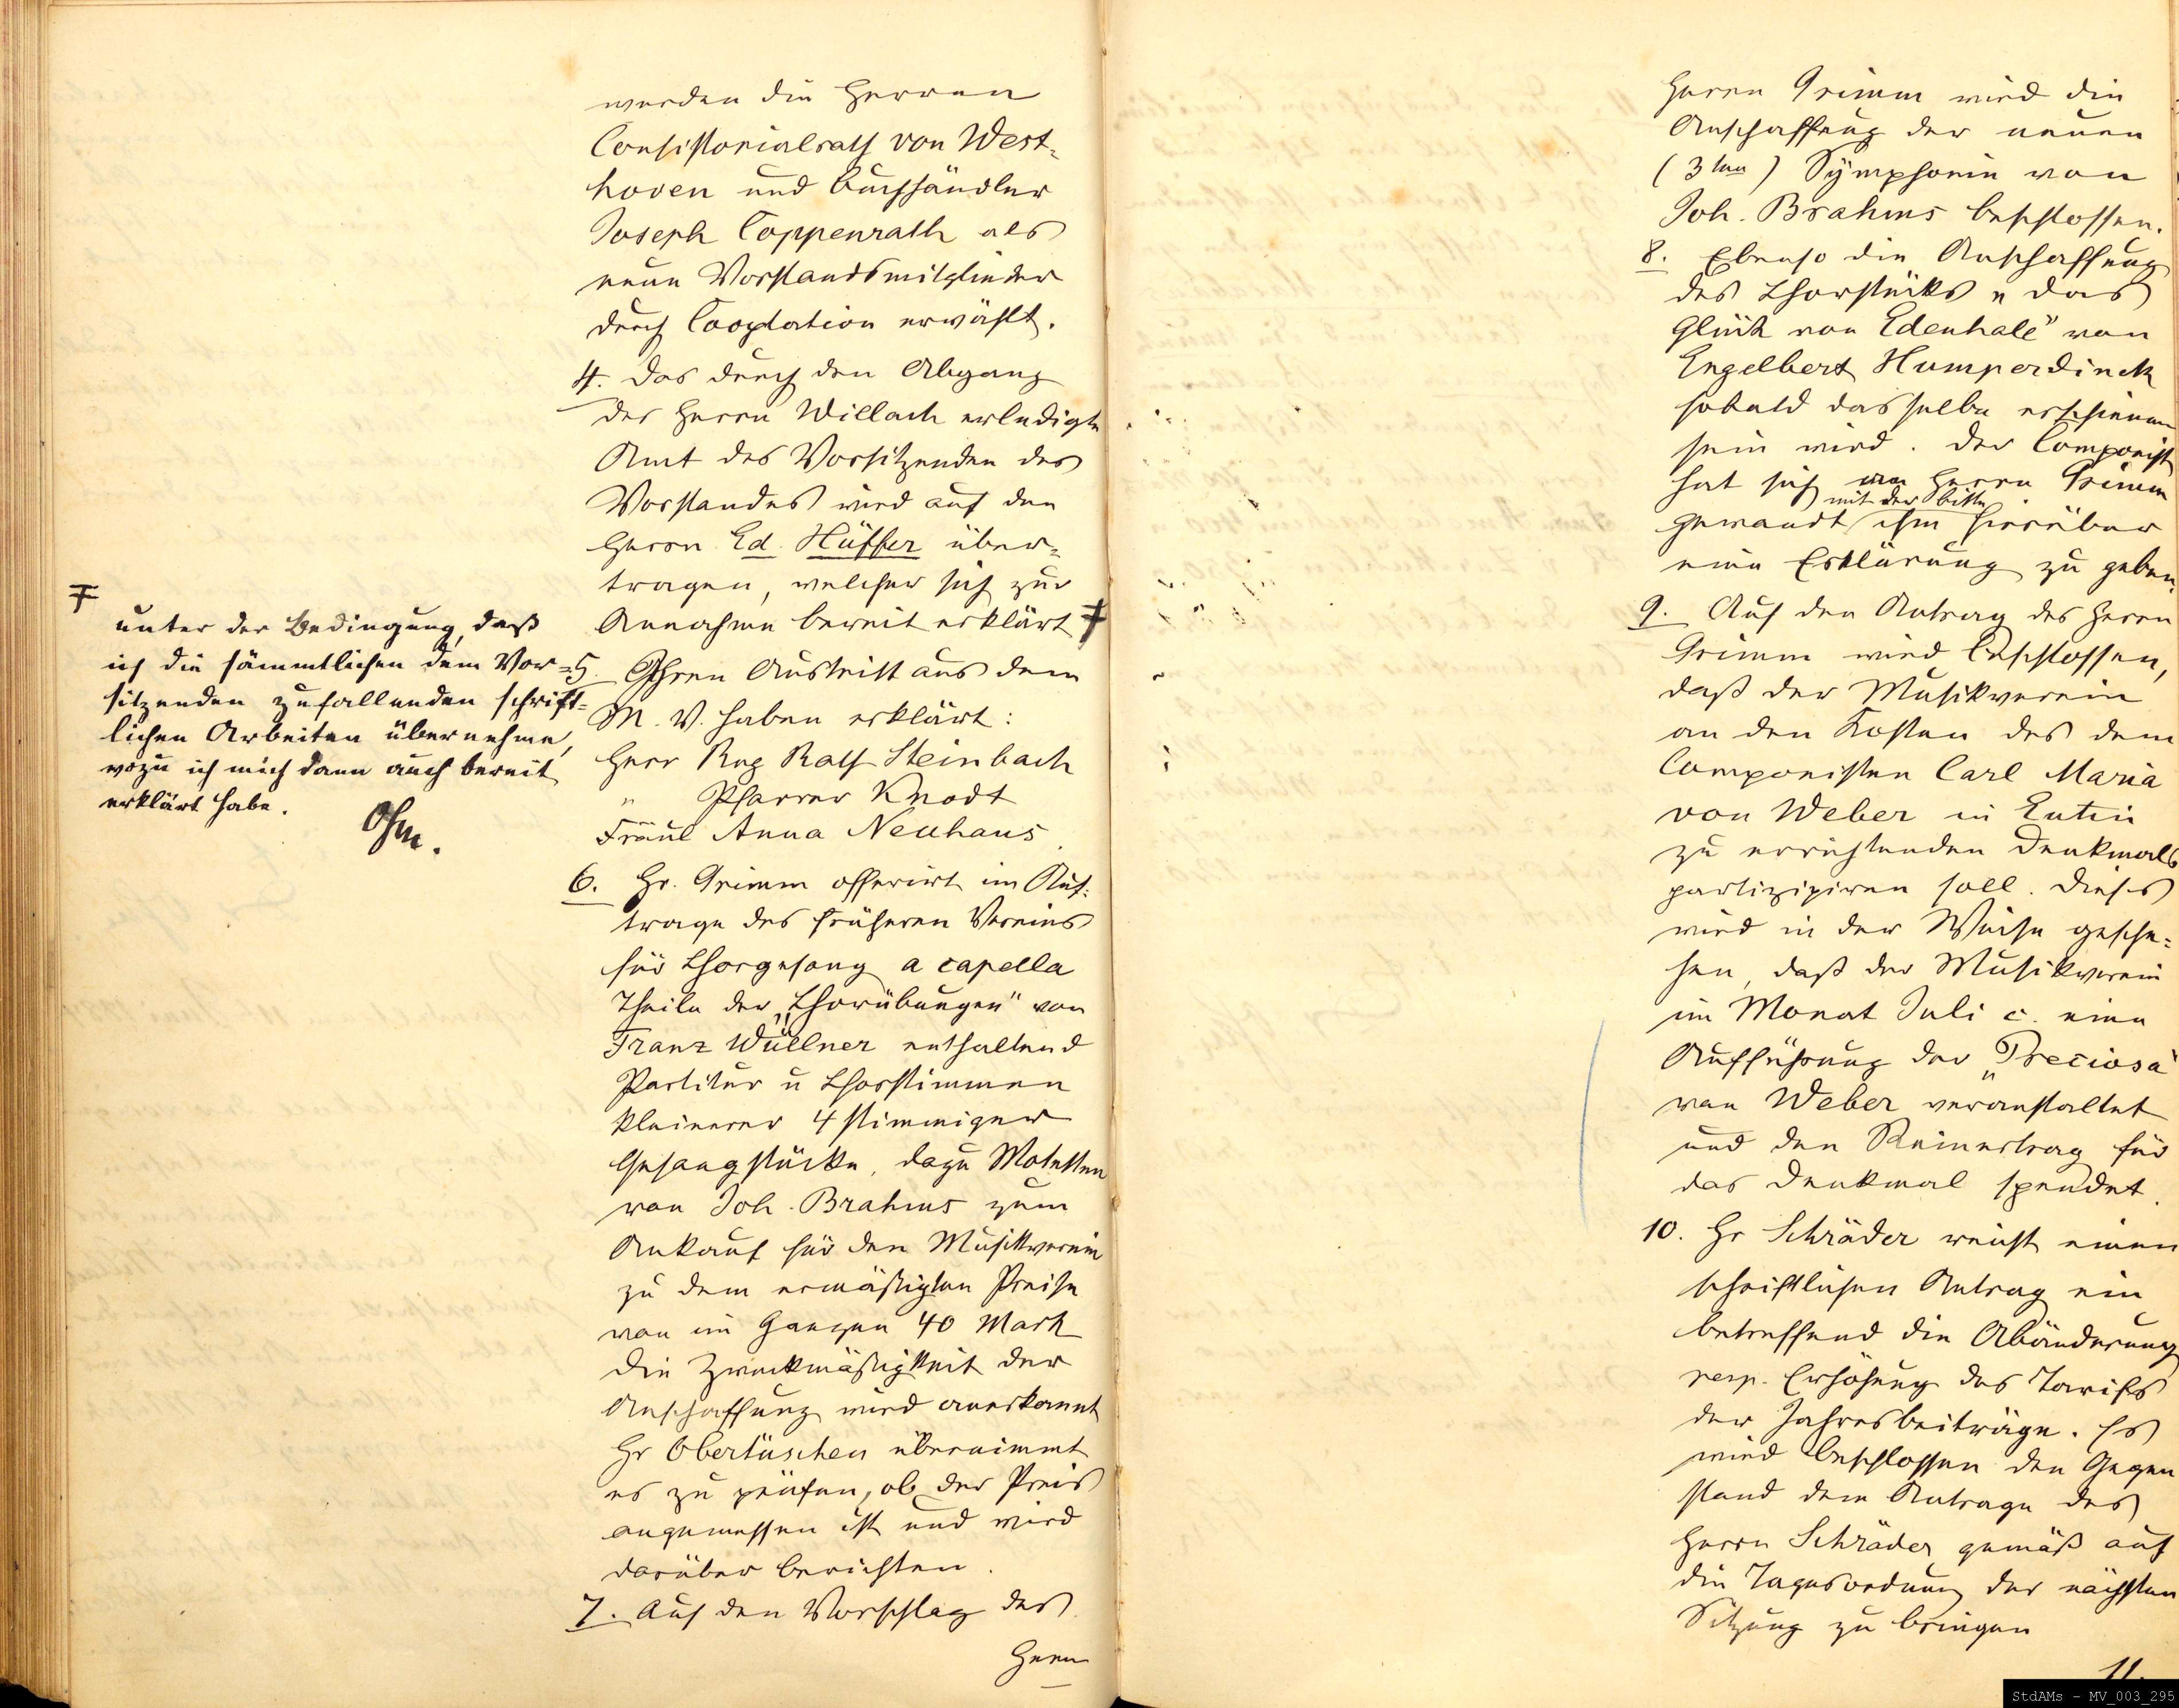 werden die Herren
Consistorialrath von West-
hoven und Buchhändler
Joseph Coppenrath als
neue Vorstandsmitglieder
durch Cooptation erwählt.
4. Das durch den Abgang
des Herrn Willach erledigte
Amt des Vorsitzenden des
Vorstandes wird auf den
Herrn Ed. Hüffer über-
tragen, welcher sich zur
Annahme bereit erklärt ╪
╪
unter der Bedingung, daß
ich die sämmtlichen dem Vor=
sitzenden zufallenden schrift=
lichen Arbeiten übernehme,
wozu ich mich dann auch bereit
erklärt habe.
Ohm.
5. Ihren Austritt aus dem
M. V. haben erklärt:
Herr Reg Rath Steinbach
" Pfarrer Knodt
Fräul Anna Neuhaus.
6. Hr. Grimm offerirt im Auf-
trage des früheren Vereins
für Chorgesang a capella
Theile der „Chorübungen" von
Franz Wüllner enthaltend
Partitur u Chorstimmen
kleinerer 4 stimmiger
Gesangstücke, dazu Motetten
von Joh. Brahms zum
Ankauf für den Musikverein
zu dem ermäßigten Preise
von im Ganzen 40 Mark
Die Zweckmäßigkeit der
Anschaffung wird anerkannt
Hr Obertüschen übernimmt
es zu prüfen, ob der Preis
angemessen ist und wird
darüber berichten.
7. Auf den Vorschlag des
Herrn
Herrn Grimm wird die
Anschaffung der neuen
(3ten) Symphonie von
Joh. Brahms beschlossen.
8. Ebenso die Anschaffung
des Chorstücks „das
Glück von Edenhale" von
Engelbert Humperdinck
sobald dasselbe erschienen
sein wird. Der Componist
hat sich an Herrn Grimm
mit der Bitte
gewandt ihm hierüber
eine Erklärung zu geben.
9. Auf den Antrag des Herrn
Grimm wird beschlossen,
daß der Musikverein
an den Kosten des dem
Componisten Carl Maria
von Weber in Eutin
zu errichtenden Denkmals
partizipiren soll. Dieses
wird in der Weise gesche-
hen, daß der Musikverein
im Monat Juli c. eine
Aufführung der „Preciosa"
von Weber veranstaltet
und den Reinertrag für
das Denkmal spendet.
10. Hr Schräder reicht einen
schriftlichen Antrag ein
betreffend die Abänderung
resp. Erhöhung des Tarifs
der Jahresbeiträge. Es
wird beschlossen den Gegen
stand dem Antrage des
Herrn Schräder gemäß auf
die Tagesordnung der nächsten
Sitzung zu bringen
11.
StdAMs - MV_003_295